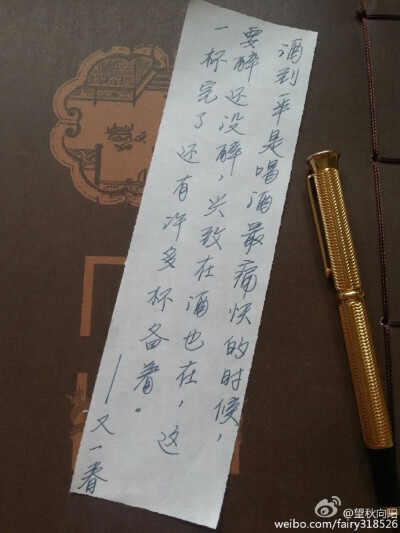 酒到半是喝酒最痛快的时候，
要醉还没醉，兴致在酒也在，这
一杯完了还有许多杯备着。
——又一春
@望秋向阳
weibo.com/fairy318526